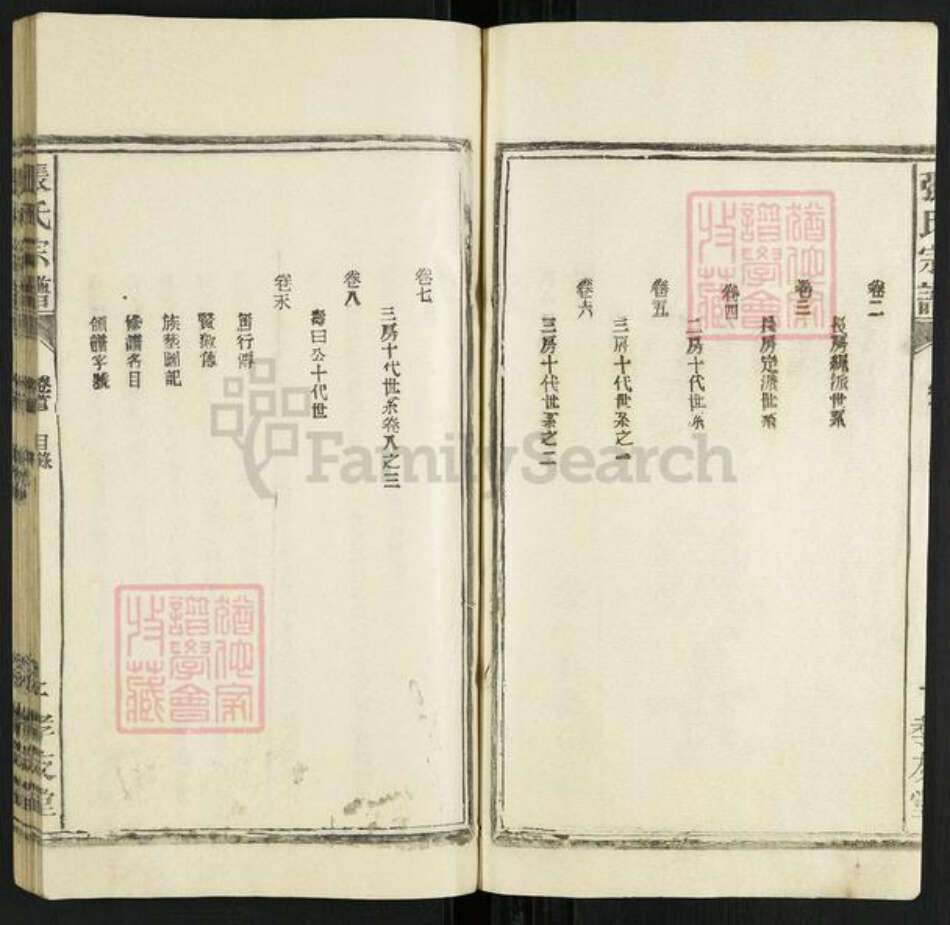 張氏宗譜
卷二
長房繩派世系
卷三
長房定派世系
卷四
二房十代世系
卷五
三房十代世系之一
卷六
三房十代世系之二
孝友堂
猶他家譜學會收藏
卷七
三房十代世系卷八之三
卷八
壽曰公十代世
卷末
篤行傳
賢淑傳
族塋圖記
修譜名目
領譜字號
張氏宗譜
卷首
目錄
孝友堂
猶他家譜學會收藏
FamilySearch